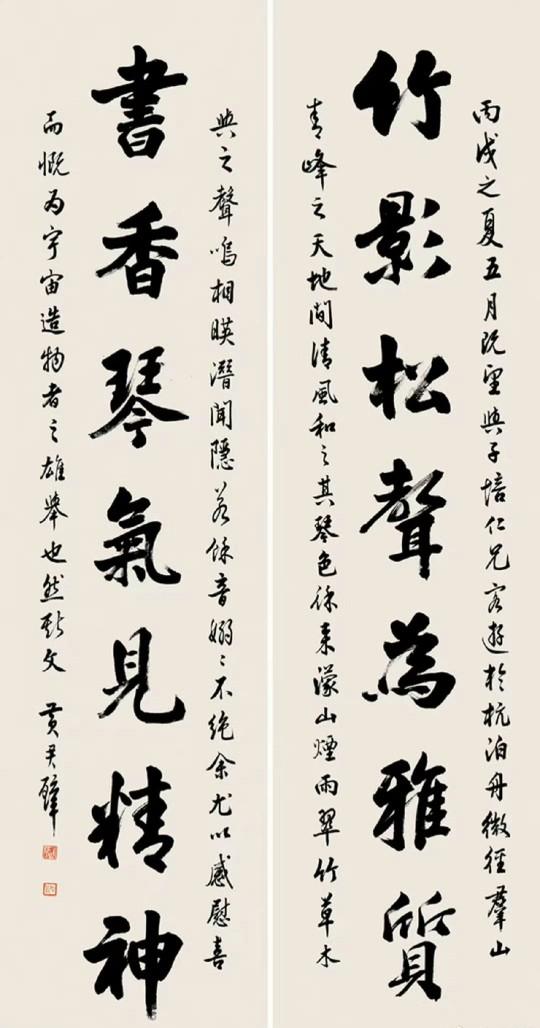 丙戌之夏五月既望與子培仁兄客遊於杭泊舟微徑羣山
竹影松聲為雅質
青峰之天地間清風和之其琴色徐来濛山煙雨翠竹草木
與之聲鳴相暎潛聞隱若餘音嫋〻不绝余尤以感慰喜
書香琴氣見精神
而慨为宇宙造物者之雄舉也然斯文 黄君璧